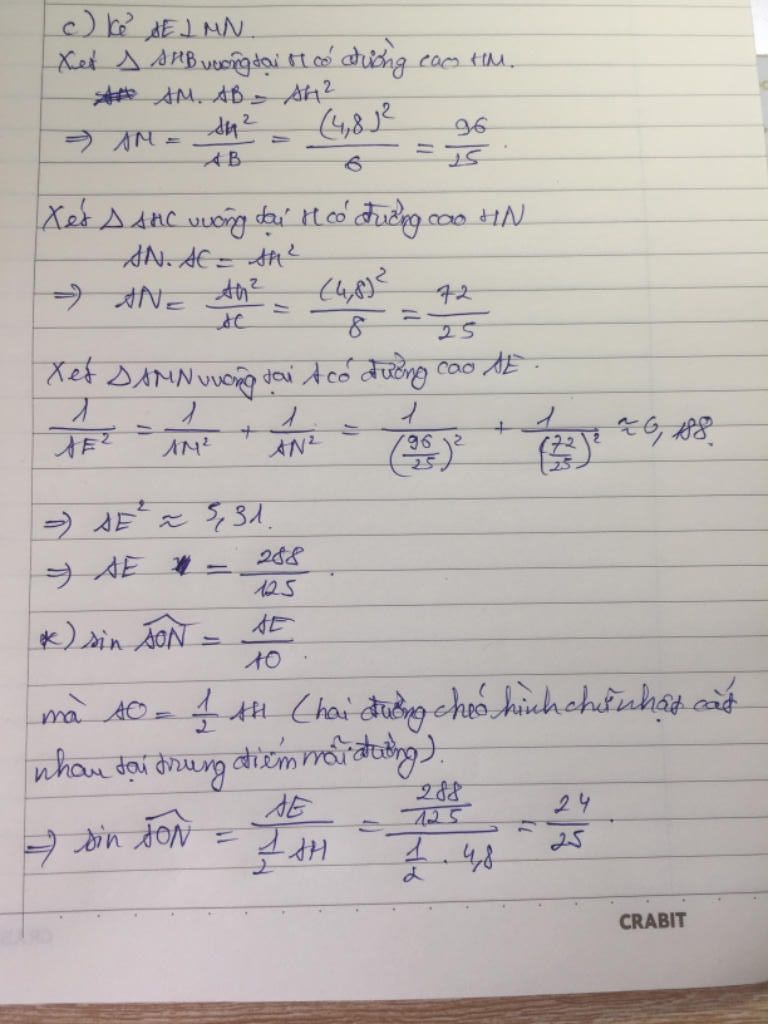 c) Kẻ AE⊥MN.
Xét Δ AHB vuông tại H có đường cao HM.
AM. AB = AH²
⇒ AM = AH²/AB = (4,8)²/6 = 96/25.
Xét Δ AHC vuông tại H có đường cao HN
AN. AC = AH²
⇒ AN = AH²/AC = (4,8)²/8 = 72/25
Xét Δ AMN vuông tại A có đường cao AE.
1/AE² = 1/AM² + 1/AN² = 1/(96/25)² + 1/(72/25)² ≈ 0,188.
⇒ AE² ≈ 5,31.
⇒ AE = 288/125.
*) sin AON = AE/AO.
mà AO = 1/2 AH (hai đường chéo hình chữ nhật cắt
nhau tại trung điểm mỗi đường).
⇒ sin AON = AE/(1/2 AH) = (288/125)/(1/2 . 4,8) = 24/25.
CRABIT